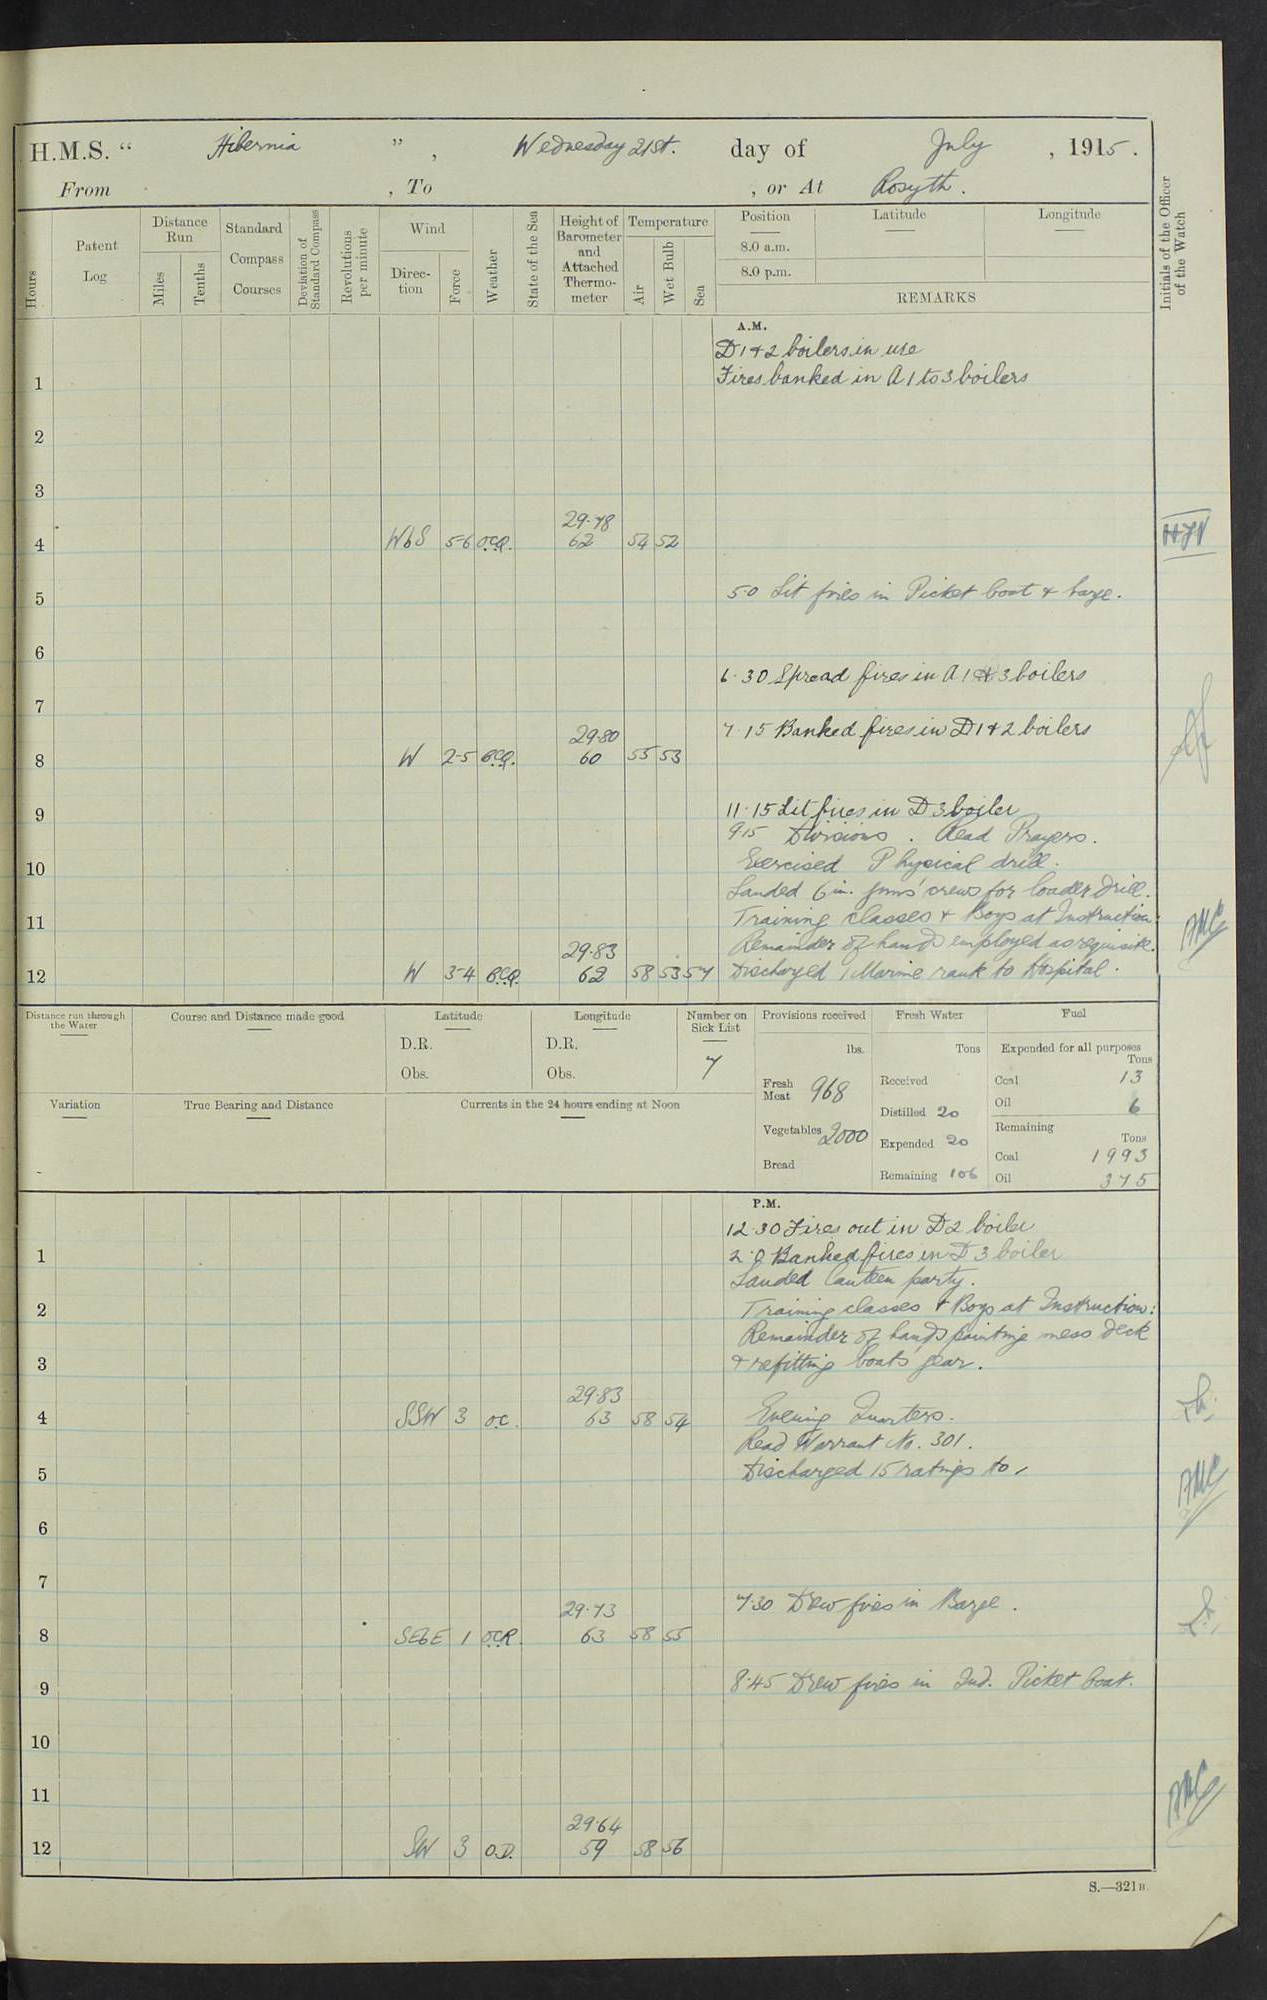 H.M.S. “ Hibernia ” , Wednesday 21st. day of July , 1915.
From , To , or At Rosyth.
Hours
Patent Log
Distance Run
Miles
Tenths
Standard Compass Courses
Deviation of Standard Compass
Revolutions per minute
Wind
Direction
Force
Weather
State of the Sea
Height of Barometer and Attached Thermometer
Temperature
Air
Wet Bulb
Sea
Position
Latitude
Longitude
8.0 a.m.
8.0 p.m.
REMARKS
Initials of the Officer of the Watch
A.M.
D 1 & 2 boilers in use
1 Fires banked in A 1 to 3 boilers
2
3
29.78
4 WbS 5-6 o.c.q. 62 54 52
5 5.0 Lit fires in Picket boat & barge.
6
6.30 Spread fires in A 1 to 3 boilers
7
7.15 Banked fires in D 1 & 2 boilers
29.80
8 W 2-5 b.c.q. 60 55 53
11.15 Lit fires in D 3 boiler
9
9.15 Divisions. Read Prayers.
10 Exercised Physical drill.
Landed 6 in. guns' crews for loader drill.
11 Training classes & Boys at Instruction:
Remainder of hands employed as requisite.
29.83
12 W 3-4 b.c.q. 62 58 53 57 Discharged 1 Marine rank to Hospital.
Distance run through the Water
Course and Distance made good
Latitude
D.R.
Obs.
Longitude
D.R.
Obs.
Number on Sick List
7
Provisions received
lbs.
Fresh Meat 968
Vegetables 2000
Bread
Fresh Water
Tons
Received
Distilled 20
Expended 20
Remaining 106
Fuel
Expended for all purposes
Tons
Coal 13
Oil 6
Remaining
Tons
Coal 1993
Oil 375
Variation
True Bearing and Distance
Currents in the 24 hours ending at Noon
P.M.
12.30 Fires out in D 2 boiler
1 2.0 Banked fires in D 3 boiler
Landed Canteen party.
2 Training classes & Boys at Instruction:
Remainder of hands painting mess deck
3 & refitting boats' gear.
29.83
4 SSW 3 o.c. 63 58 54 Evening Quarters.
Read Warrant No. 301.
5 Discharged 15 ratings to
6
7
7.30 Drew fires in Barge.
29.73
8 SEbE 1 o.c.R. 63 58 55
9 8.45 Drew fires in 2nd. Picket boat.
10
11
29.64
12 SW 3 o.D. 59 58 56
S.—321 B.